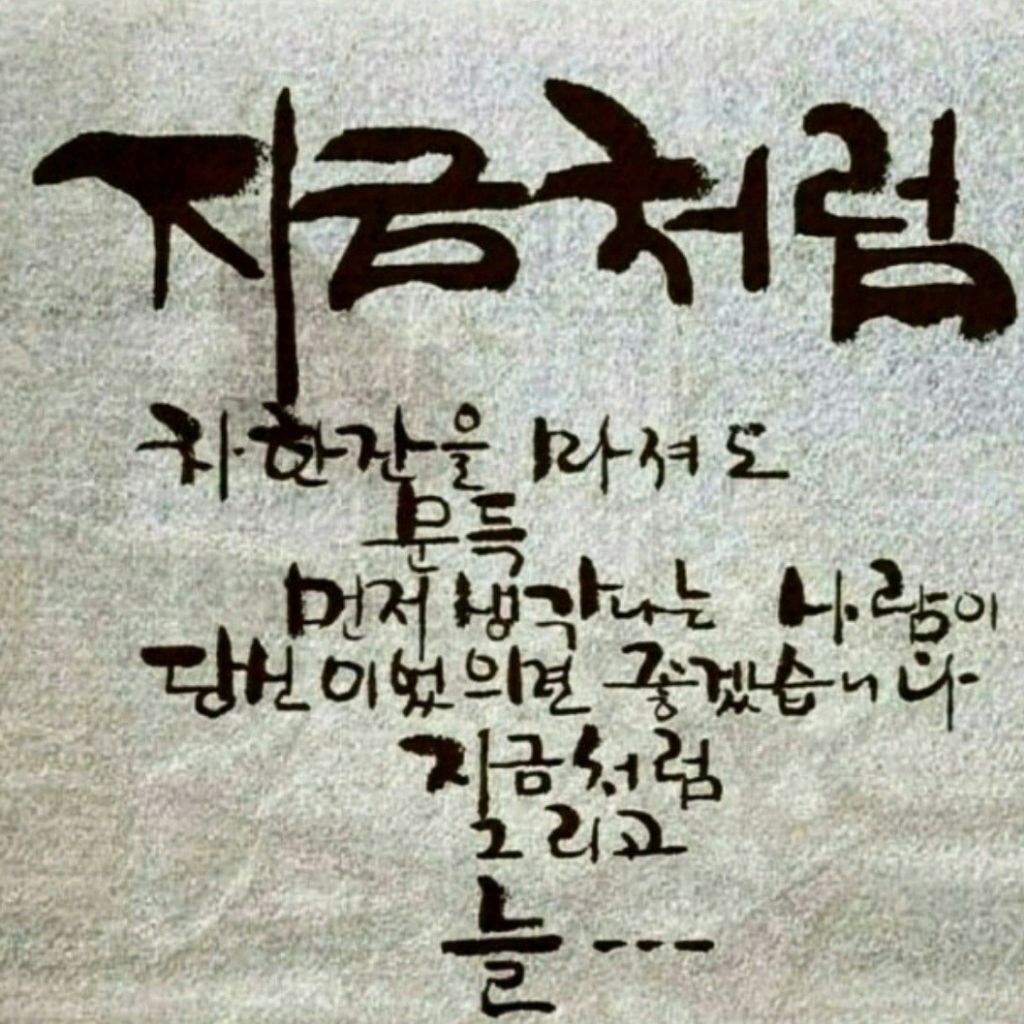 지금처럼
차 한잔을 마셔도
문득
먼저 생각나는 사람이
당신이었으면 좋겠습니다
지금처럼
그리고
늘---